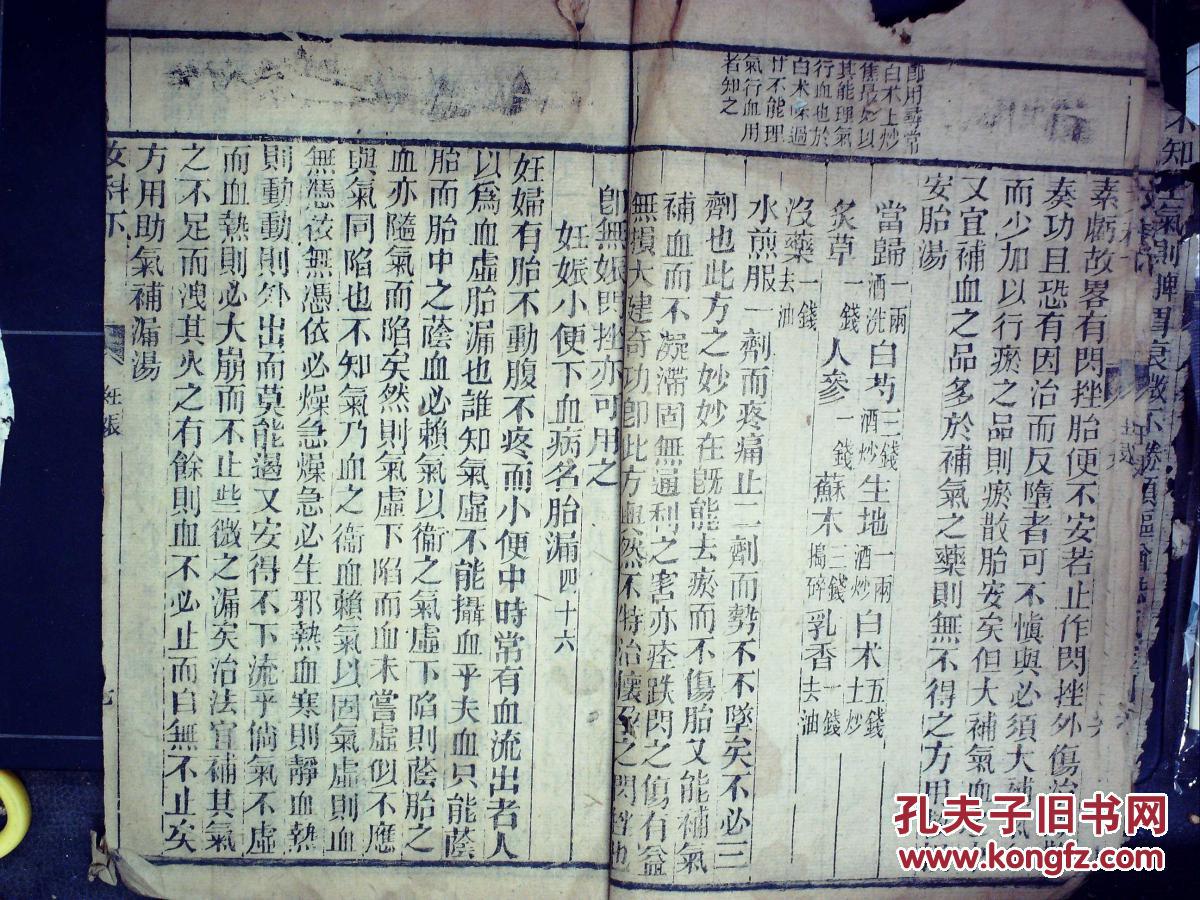 即用尋常
白术土炒
焦最妙以
其能理氣
行血也於
白术味過
甘不能理
氣行血用
者知之
素虧故畧有閃挫胎便不安若止作閃挫外傷治
奏功且恐有因治而反墮者可不慎與必須大補氣
而少加以行瘀之品則瘀散胎安矣但大補氣血
又宜補血之品多於補氣之藥則無不得之方用
安胎湯
當歸一兩酒洗白芍三錢酒炒生地一兩酒炒白术五錢土炒
炙草一錢人參一錢蘇木三錢搗碎乳香一錢去油
沒藥一錢去油
水煎服一劑而疼痛止二劑而勢不下墜矣不必三
劑也此方之妙妙在既能去瘀而不傷胎又能補氣
補血而不凝滯固無通利之害亦痊跌閃之傷有益
無損大建奇功卽此方與然不特治懷孕之閃挫也
卽無娠閃挫亦可用之
妊娠小便下血病名胎漏四十六
妊婦有胎不動腹不疼而小便中時常有血流出者人
以爲血虛胎漏也誰知氣虛不能攝血乎夫血只能蔭
胎而胎中之蔭血必賴氣以衞之氣虛下陷則蔭胎之
血亦隨氣而陷矣然則氣虛下陷而血未嘗虛似不應
與氣同陷也不知氣乃血之衞血賴氣以固氣虛則血
無憑依無憑依必燥急燥急必生邪熱血寒則靜血熱
則動動則外出而莫能遏又安得不下流乎倘氣不虛
而血熱則必大崩而不止些微之漏矣治法宜補其氣
之不足而洩其火之有餘則血不必止而自無不止矣
方用助氣補漏湯
女科下
妊娠
孔夫子旧书网
www.kongfz.com